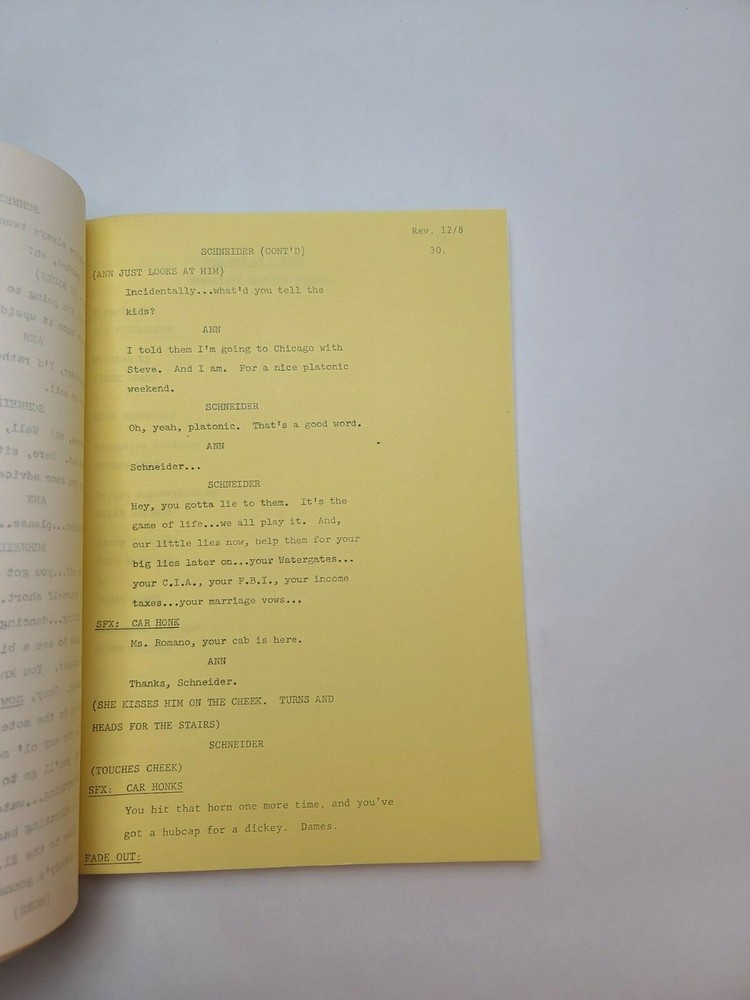 Rev. 12/8
SCHNEIDER (CONT'D)
30.
(ANN JUST LOOKS AT HIM)
Incidentally...what'd you tell the
kids?
ANN
I told them I'm going to Chicago with
Steve. And I am. For a nice platonic
weekend.
SCHNEIDER
Oh, yeah, platonic. That's a good word.
ANN
Schneider...
SCHNEIDER
Hey, you gotta lie to them. It's the
game of life...we all play it. And,
our little lies now, help them for your
big lies later on...your Watergates...
your C.I.A., your F.B.I., your income
taxes...your marriage vows...
SFX: CAR HONK
Ms. Romano, your cab is here.
ANN
Thanks, Schneider.
(SHE KISSES HIM ON THE CHEEK. TURNS AND
HEADS FOR THE STAIRS)
SCHNEIDER
(TOUCHES CHEEK)
SFX: CAR HONKS
You hit that horn one more time, and you've
got a hubcap for a dickey. Dames.
FADE OUT: